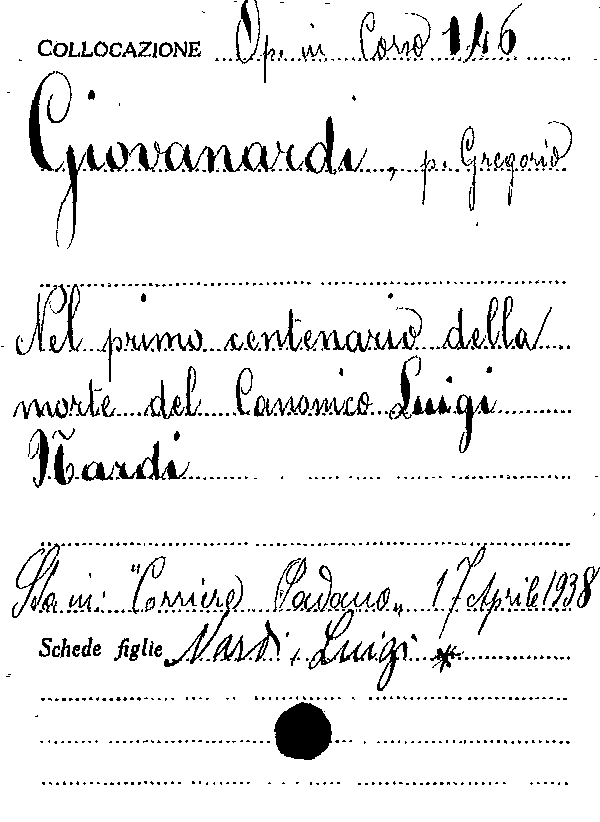 COLLOCAZIONE Op. in Corso 146
Giovanardi, p. Gregorio
Nel primo centenario della
morte del Canonico Luigi
Nardi
Sta in: "Corriere Padano„ 17 Aprile 1938
Schede figlie Nardi, Luigi *